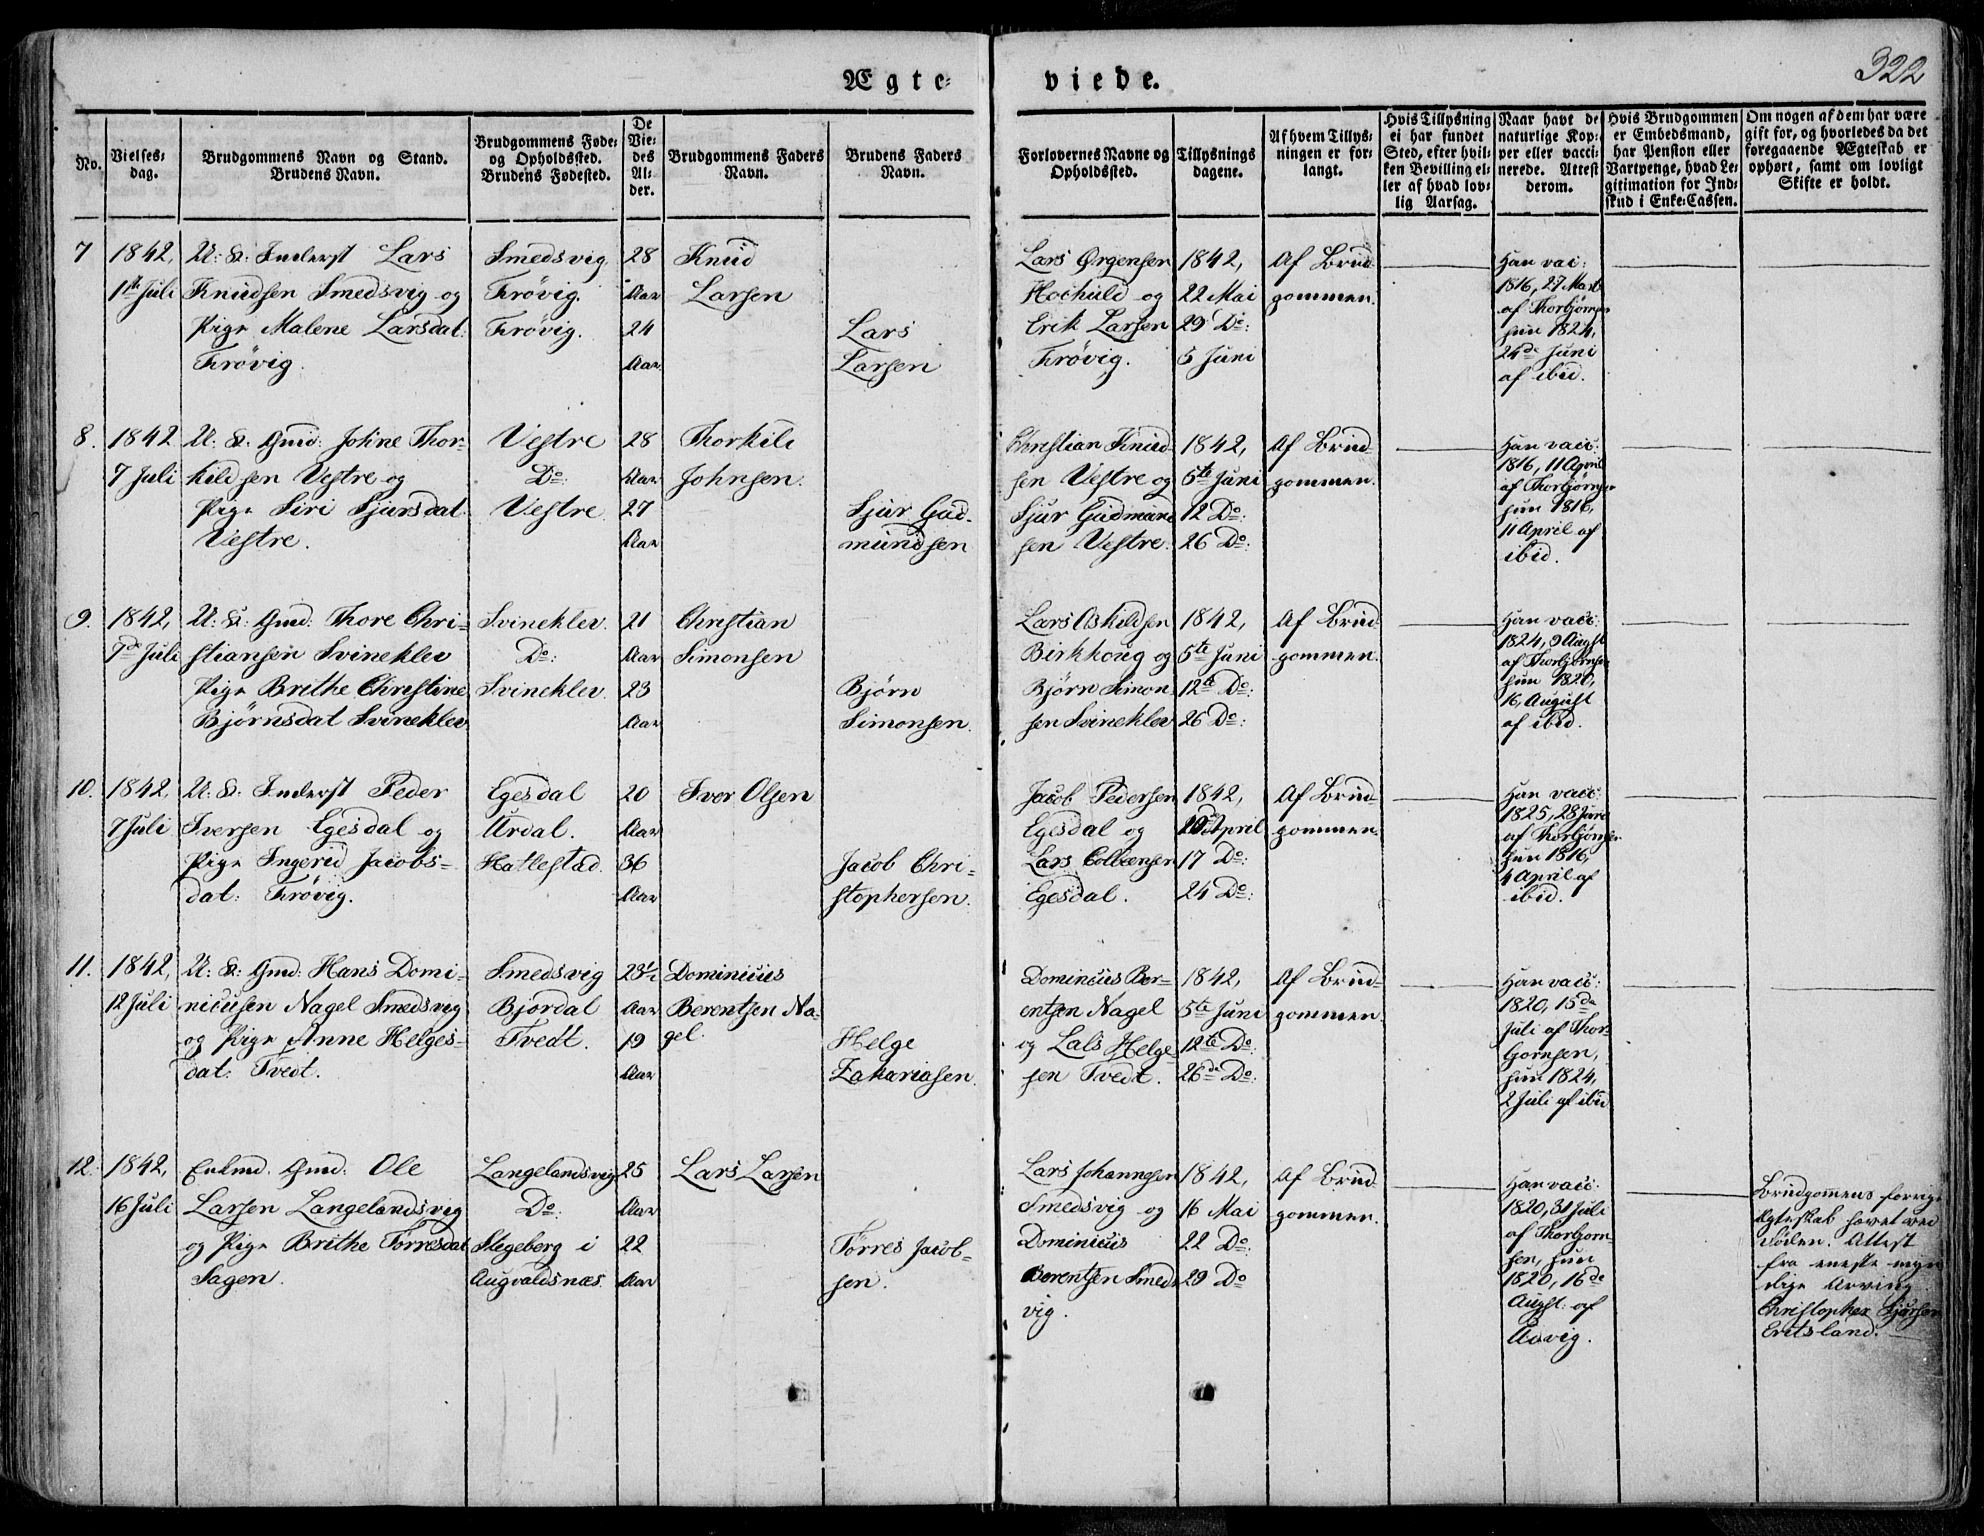 322
Ægte-
viede.
No.
Vielses-
dag.
Brudgommens Navn og Stand.
Brudens Navn.
Brudgommens Føde-
og Opholdssted.
Brudens Fødested.
De
Vie-
des
Al-
der.
Brudgommens Faders
Navn.
Brudens Faders
Navn.
Forlovernes Navne og
Opholdssted.
Tillysnings
dagene.
Af hvem Tillys-
ningen er for-
langt.
Hvis Tillysning
ei har fundet
Sted, efter hvil-
ken Bevilling el-
ler af hvad lov-
lig Aarsag.
Naar havt de
naturlige Kop-
per eller vacci-
nerede. Attest
derom.
Hvis Brudgommen
er Embedsmand,
har Pension eller
Vartpenge, hvad Le-
gitimation for Ind-
skud i Enke-Cassen.
Om nogen af dem har være
gift før, og hvorledes da det
foregaaende Ægteskab er
ophørt, samt om lovligt
Skifte er holdt.
7
1842,
1te Juli
U: K: Inderst Lars
Knudsen Smedsvig og
Pige Malene Larsdat:
Frøvig.
Smedsvig
Frøvig.
Frøvig.
28
Aar
24
Aar
Knud
Larsen
Lars
Larsen
Lars Ørgensen
Hochuld og
Erik Larsen
Frøvig.
1842,
22 Mai
29 Do:
5 Juni
Af Brud-
gommen.
Han vac:
1816, 27 Marts
af Thorbjørnsen
hun 1824,
24de Juni
af ibid.
8.
1842
7 Juli
U: K: Gmd: Johne Thor-
kildsen Vestre og
Pige Siri Sjursdat:
Vestre.
Vestre
Do:
Vestre
28
Aar
27
Aar
Thorkild
Johnsen.
Sjur Gud-
mundsen
Christian Knud-
sen Vestre og
Sjur Gudmund
sen Vestre.
1842,
5te Juni
12 Do:
26 Do:
Af Brud-
gommen.
Han vacc:
1816, 11 April
af Thorbjørnsen
hun 1816,
11 April af
ibid.
9.
1842,
7de Juli
U: K: Gmd: Thore Chri-
stiansen Svineklev
Pige Brithe Christine
Bjørnsdat Svineklev
Svineklev.
Do:
Svineklev.
21
Aar
23
Aar
Christian
Simonsen
Bjørn
Simonsen.
Lars Askildsen
Birkhoug og
Bjørn Simon
sen Svineklev
1842,
5te Juni
12te Do:
26 Do:
Af Brud-
gommen.
Han vacc:
1824, 9 Augst
af Thorbjørnsen
hun 1820,
16, August
af ibid.
10.
1842,
7 Juli
U: K: Inderst Peder
Iversen Egesdal og
Pige Ingerid Jacobs-
dat: Frøvig.
Egesdal
Urdal.
Hatlestad
20
Aar
36
Aar
Iver Olsen
Jacob Chri-
stophersen.
Jacob Pedersen
Egesdal og
Lars Colbensen
Egesdal.
1842,
10 April
17 Do:
24 Do:
Af Brud-
gommen.
Han vacc:
1825, 28 Juni
af Thorbjørnsen
hun 1816,
4 April af
ibid.
11.
1842,
12 Juli
U: K: Gmd: Hans Domi-
nicusen Nagel Smedsvig
og Pige Anne Helges-
dat: Tvedt.
Smedsvig
Bjordal
Tvedt.
23½
Aar
19
Aar
Dominicus
Berentsen Na-
gel.
Helge
Zakariasen.
Dominicus Ber-
entsen Nagel
og Lals Helge-
sen Tvedt.
1842,
5te Juni
12te Do:
26de Do:
Af Brud-
gommen.
Han vacc:
1820, 15de
Juli af Thor-
bjørnsen,
hun 1824,
2 Juli af ibid
12.
1842,
16 Juli
Enkmd. Gmd: Ole
Larsen Langelandsvig
og Pige Brithe Tørresdat
Sagen.
Langelandsvig
Do:
Stegeberg i
Augvaldsnæs.
25
Aar
22
Aar
Lars Larsen
Tørres Jacob-
sen.
Lars Johannesen
Smedsvig og
Dominicus
Berentsen Smeds
vig.
1842,
16 Mai
22 Do:
29 Do
Af Brud-
gommen.
Han vacc:
1820, 31 Juli
af Thorbjørn-
sen, hun
1820, 16de
Augst: af
Aavig.
Brudgomens forrige
Ægteskab hævet ved
Døden. Attest
fra eneste myn
dige Arving
Christopher Sjursen
Eritsland.